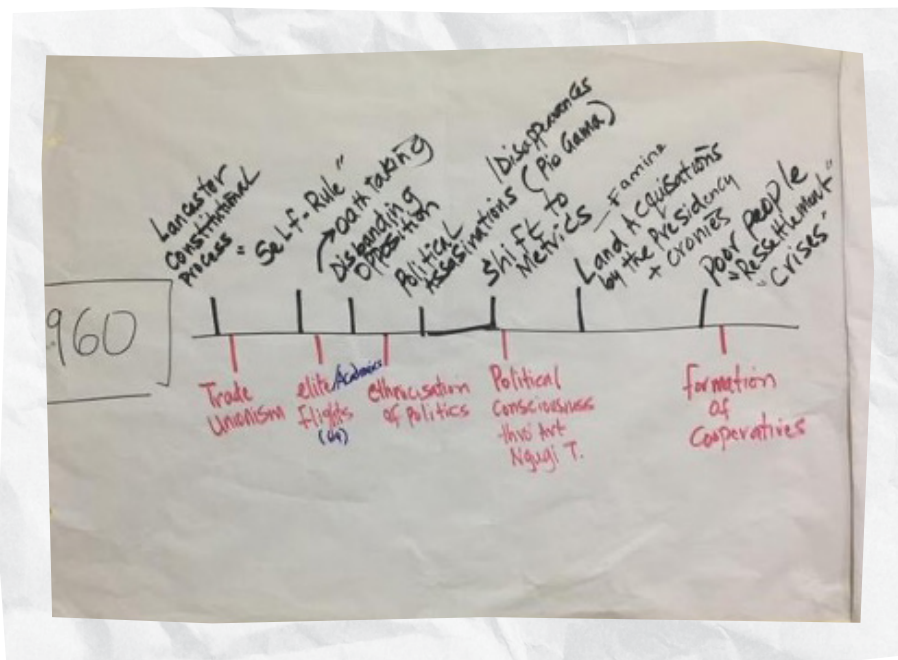 960
Lancaster
Constitutional
process = Self-Rule"
Oath Taking
Disbanding
Opposition
Political
Assasinations (Pio Gama)
Shift to
Metrics
Famine
Land Acquisations
by the Presidency
+ Cronies
Poor people
"Ressettlement"
"Crises"
Trade
Unionism
elite/Academics
flights
ethnicisation
of Politics
Political
Consciousness
thro' Art
Ngugi T.
formation
of
Cooperatives